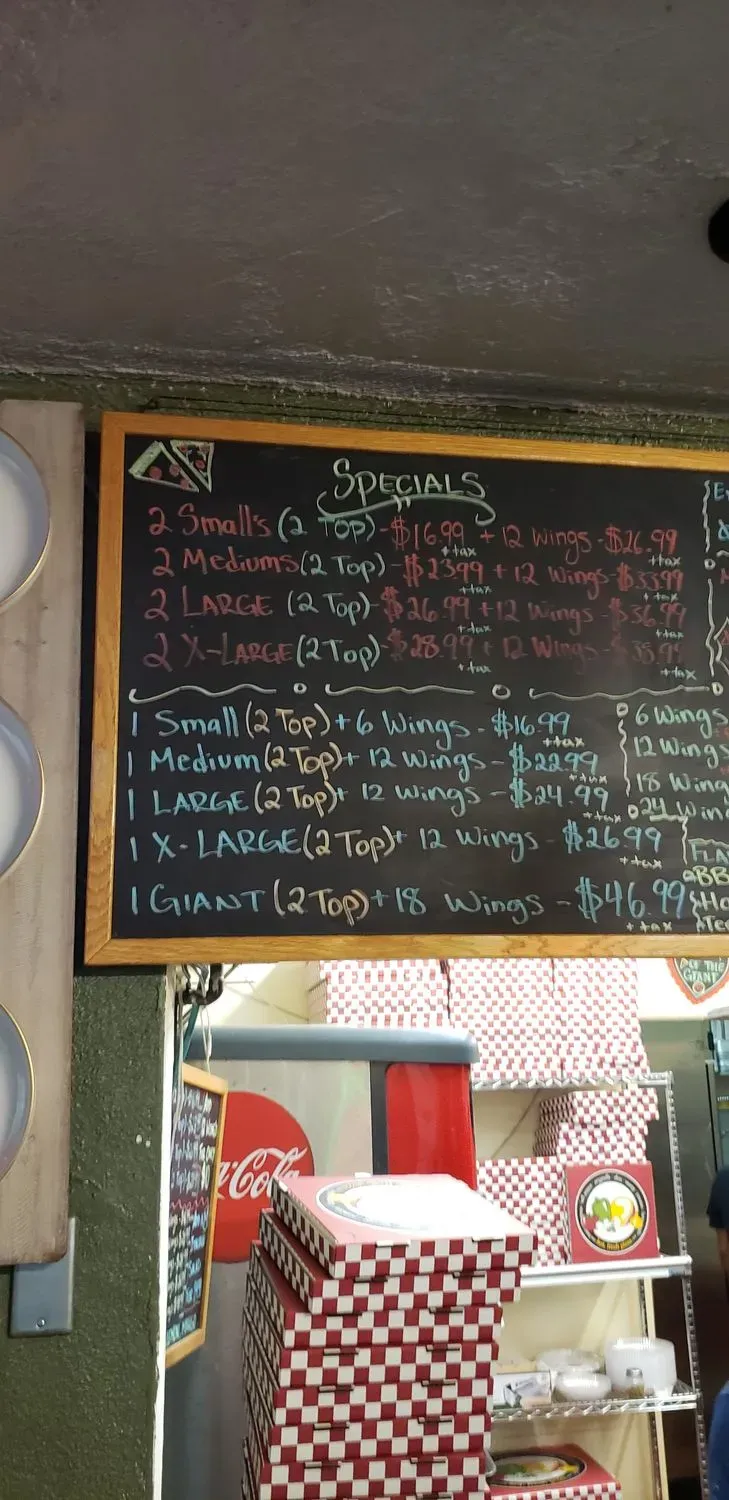 SPECIALS
2 Small's (2 TOP) - $16.99 + 12 Wings - $26.99
+tax
2 Mediums (2 Top) - $23.99 + 12 Wings - $33.99
+tax +tax
2 LARGE (2 Top) - $26.99 + 12 Wings - $36.99
+tax +tax
2 X-LARGE (2 Top) - $28.99 + 12 Wings - $38.99
+tax +tax
1 Small (2 Top) + 6 Wings - $16.99
+tax
1 Medium (2 Top) + 12 Wings - $22.99
+tax
1 LARGE (2 Top) + 12 Wings - $24.99
+tax
1 X-LARGE (2 Top) + 12 Wings - $26.99
+tax
1 GIANT (2 Top) + 18 Wings - $46.99
+tax
6 Wings
12 Wings
18 Wing
24 Win
FLA
BB
Ho
OF THE
GIANT
Coca-Cola